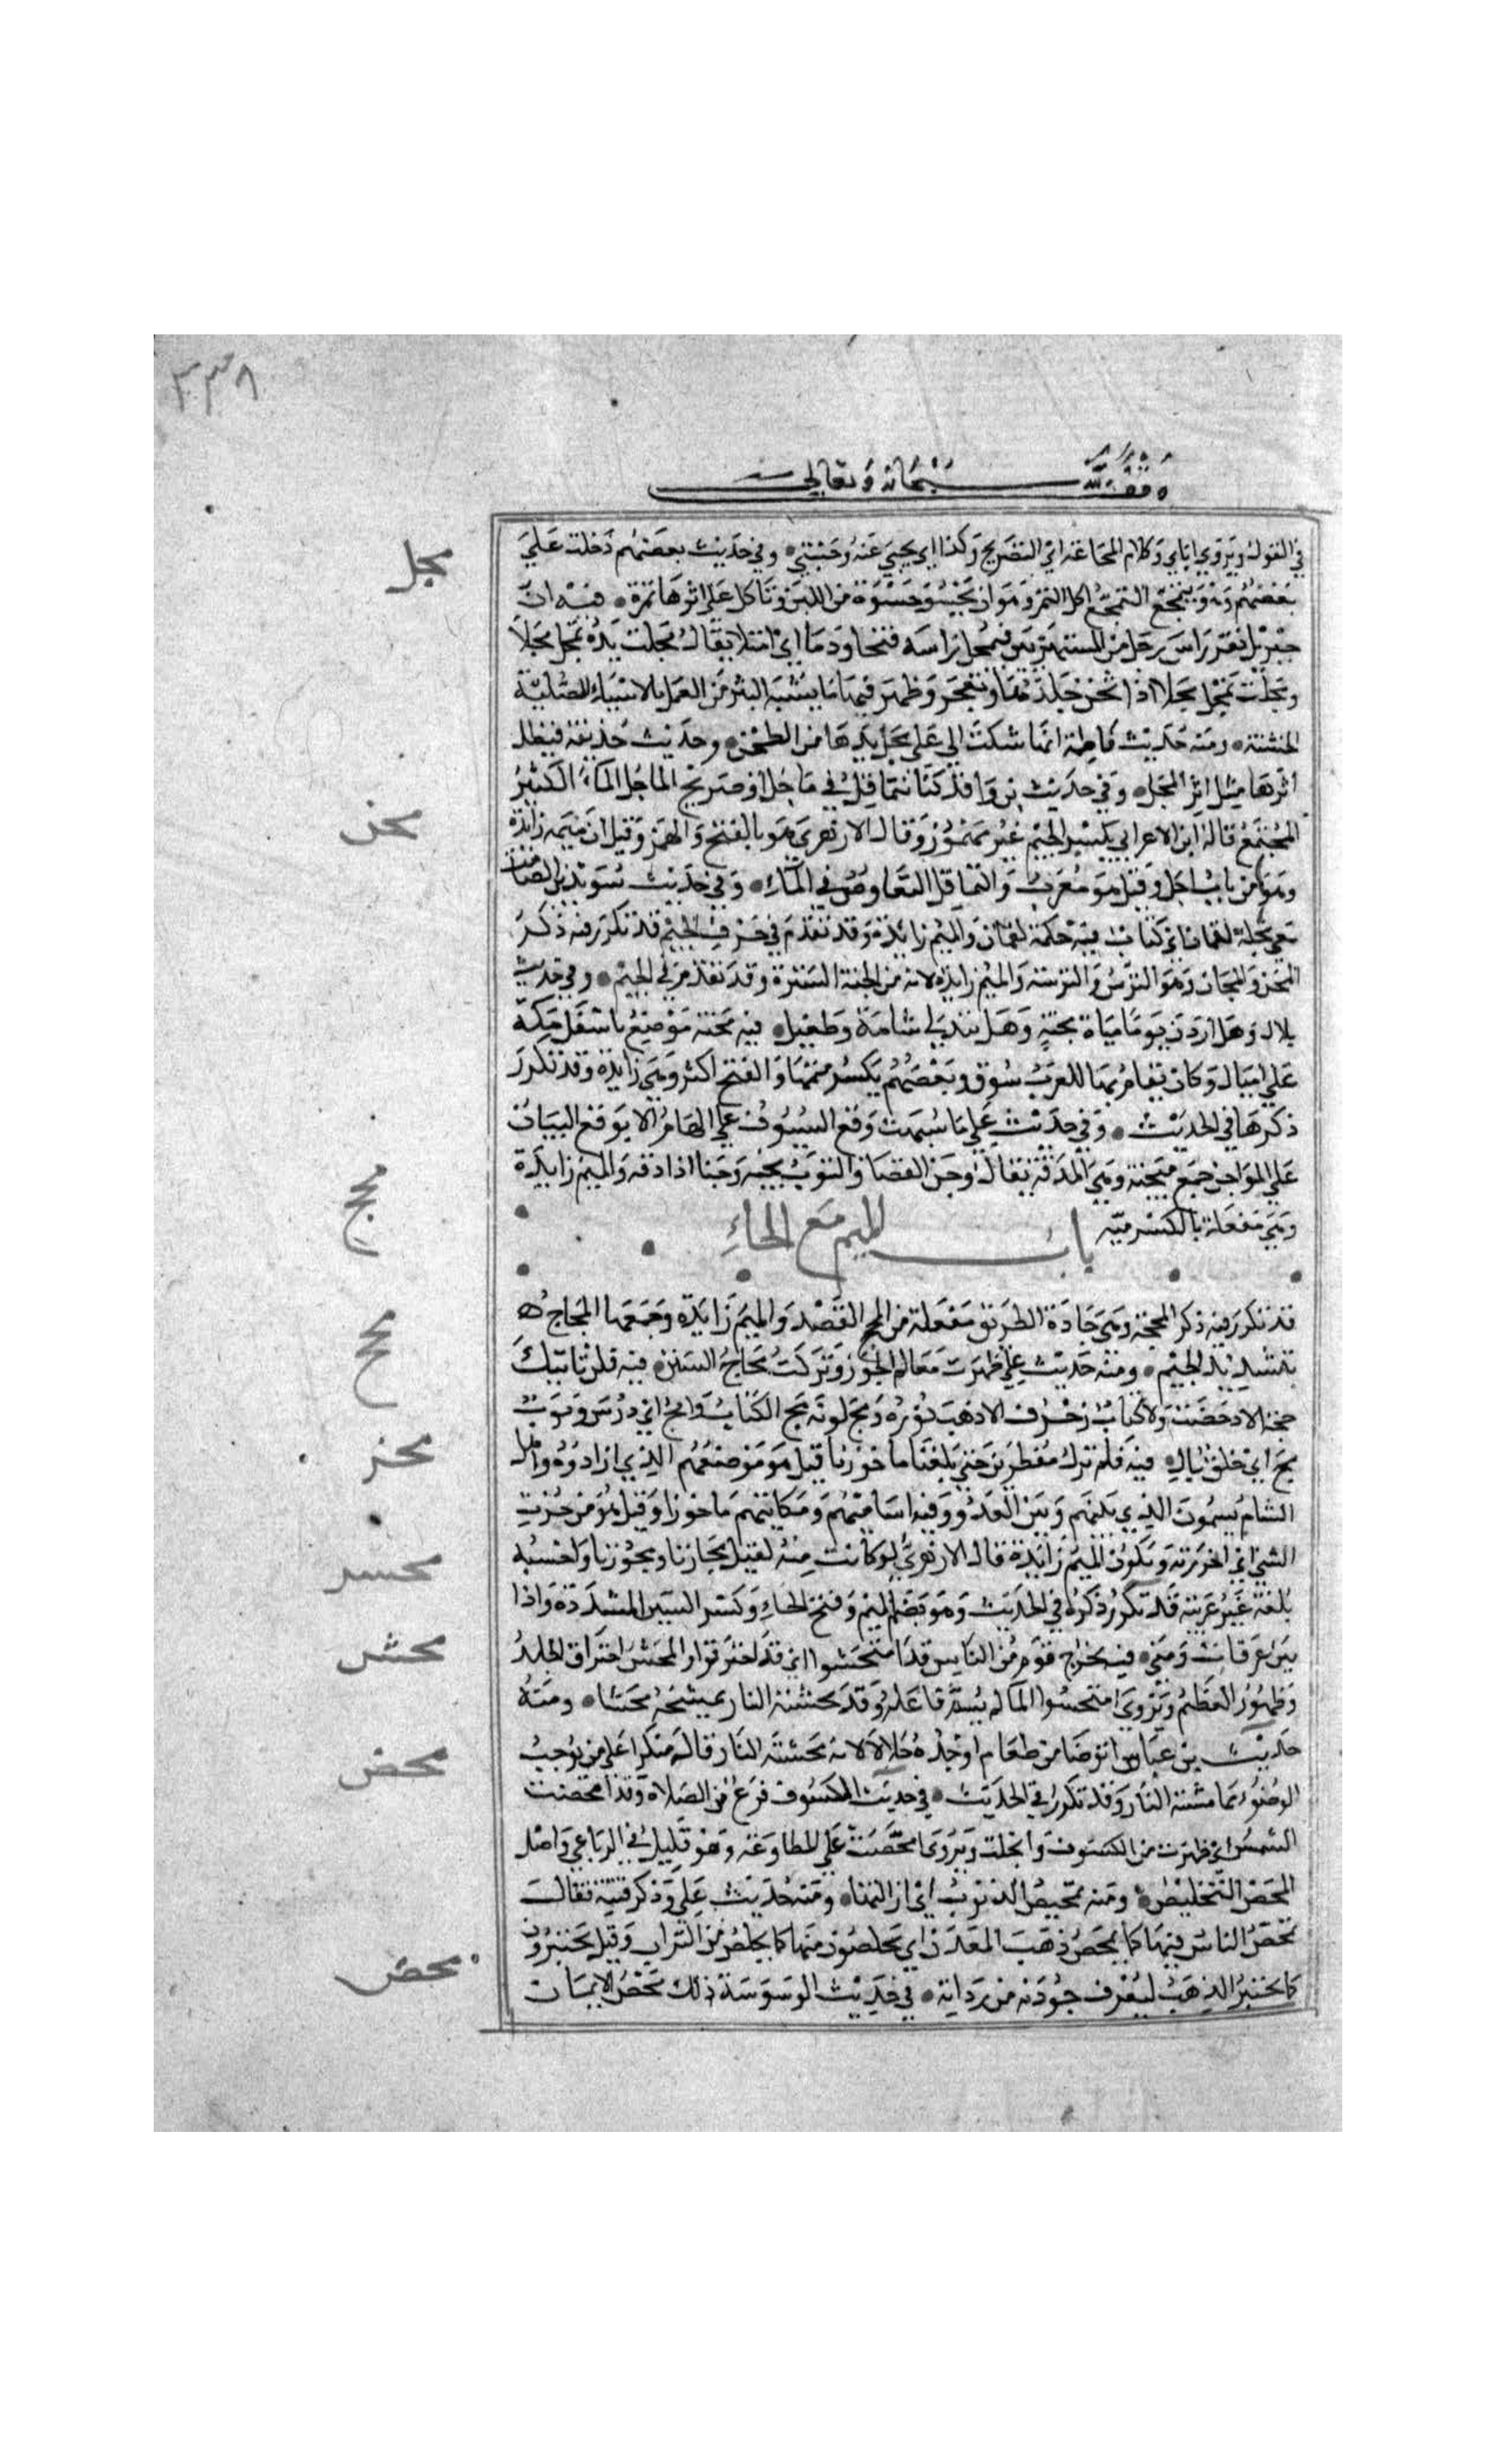 ٣٣٨
وقف لله سبحانه وتعالى
في القول ويروي اياي وكلام المجاعة اي التصريح وكذا اي يحيي عنه وحتى وفي حديث بعضهم دخلت علي
مجل
بعضهم وهو يتمجع التمجع اكل التمر وهو ان يحسو حسوة من اللبن وتاكل علي اثرها تمرة فيه ان
جبريل نقر راس رجل من المستهزئين فتمجل راسه قيحا ودما اي امتلا يقال مجلت يده تمجل مجلا
ومجلت تمجل مجلا اذا ثخن جلدها وتعجر وظهر فيها ما يشبه البثر من العمل بالاشياء الصلبة
الخشنة ومنه حديث فاطمة انها شكت الي علي مجل يديها من الطحن وحديث حذيفة فيظل
اثرها مثل اثر المجل وفي حديث بن واقد كنا نتماقل في ماجل او صهريج الماجل الماء الكثير
المجتمع قاله ابن الاعرابي بكسر الجيم غير مهموز وقال الازهري هو بالفتح والهمز وقيل ان ميمه زائدة
مجن
وهو من باب اجل وقيل هو معرب والتماقل التغاوص في الماء وفي حديث سويد بن الصامت
معي مجلة لقمان اي كتاب فيه حكمة لقمان والميم زائدة وقد تقدم في حرف الجيم قد تكرر فيه ذكر
المجن والمجان وهو الترس والترسة والميم زائدة لانه من الجنة السترة وقد تقدم في الجيم وفي حديث
بلال وهل اردن يوما مياه مجنة وهل يبدون لي شامة وطفيل فيه مجنة موضع باسفل مكة
علي اميال وكان يقام بها للعرب سوق وبعضهم يكسر ميمها والفتح اكثر وهي زائدة وقد تكرر
ذكرها في الحديث وفي حديث علي ما شبهت وقع السيوف علي الهام الا بوقع البيازر
علي المواجن جمع ميجنة وهي المدقة يقال وجن القصار الثوب يجنه وجنا اذا دقه والميم زايدة
وهي مفعلة بالكسر منه
باب الميم مع الحاء
محج
قد تكرر فيه ذكر المحجة وهي جادة الطريق مفعلة من الحج القصد والميم زايدة وجمعها المحاج
بتشديد الجيم ومنه حديث علي ظهرت معالم الجور وتركت محاج السنن فيه فلن تاتيك
مح
حجة الا دحضت ولا كتاب زخرف الا ذهب نوره ومح لونه مح الكتاب وامح اي درس وثوب
مح اي خلق بال فيه فلم نزل مفطرين حتي بلغنا ماحوزنا قيل هو موضعهم الذي ارادوه واهل
محز
الشام يسمون الذي بينهم وبين العدو وفيه اساميهم ومكاتبهم ماحوزا وقيل هو من حزت
الشي اي احرزته وتكون الميم زايدة قال الازهري لو كانت منه لقيل محازنا ومحوزنا واحسبه
محسر
بلغة غير عربية قد تكرر ذكره في الحديث وهو بضم الميم وفتح الحاء وكسر السين المشددة واد
بين عرفات ومني فيه يخرج قوم من النار قد امتحشوا اي قد احترقوا والمحش احتراق الجلد
محش
وظهور العظم ويروي امتحشوا لما لم يسم فاعله وقد محشته النار تمحشه محشا ومنه
حديث بن عباس اتوضا من طعام اجده حلالا لانه محشته النار قاله منكرا علي من يوجب
محص
الوضوء مما مسته النار وقد تكرر في الحديث في حديث الكسوف فرغ من الصلاة وقد امحصت
الشمس اي ظهرت من الكسوف وانجلت ويروي امحصت علي المطاوعة وهو قليل في الرباعي واصل
المحص التخليص ومنه تمحيص الذنوب اي ازالتها ومنه حديث علي وذكر فتنة فقال
تمحص الناس فيها كما يمحص ذهب المعدن اي يخلصون منها كما يخلص من التراب وقيل يختبرون
كما يختبر الذهب ليعرف جودته من رداءته في حديث الوسوسة ذلك محض الايمان
محض